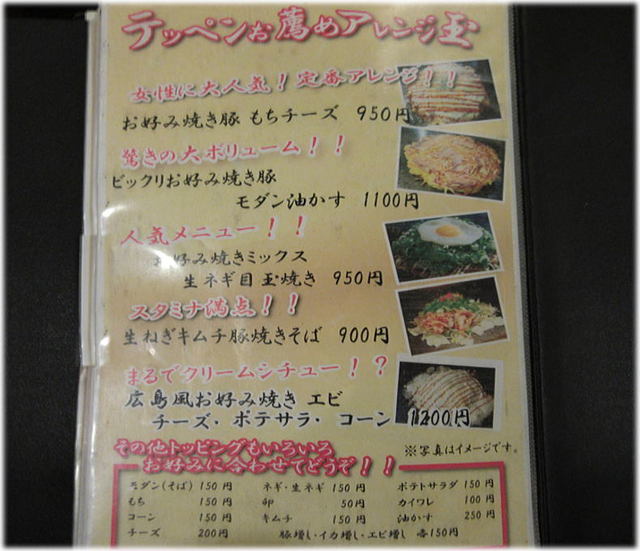 テッペンお薦めアレンジ玉
女性に大人気！定番アレンジ！！
お好み焼き豚 もちチーズ 950円
驚きの大ボリューム！！
ビックリお好み焼き豚
モダン油かす 1100円
人気メニュー！！
お好み焼きミックス
生ネギ目玉焼き 950円
スタミナ満点！！
生ねぎキムチ豚焼きそば 900円
まるでクリームシチュー！？
広島風お好み焼き エビ
チーズ・ポテサラ・コーン 1200円
※写真はイメージです。
その他トッピングもいろいろ
お好みに合わせてどうぞ！！
モダン(そば) 150円 ネギ・生ネギ 150円 ポテトサラダ 150円
もち 150円 卵 50円 カイワレ 100円
コーン 150円 キムチ 150円 油かす 250円
チーズ 200円 豚増し・イカ増し・エビ増し 各150円